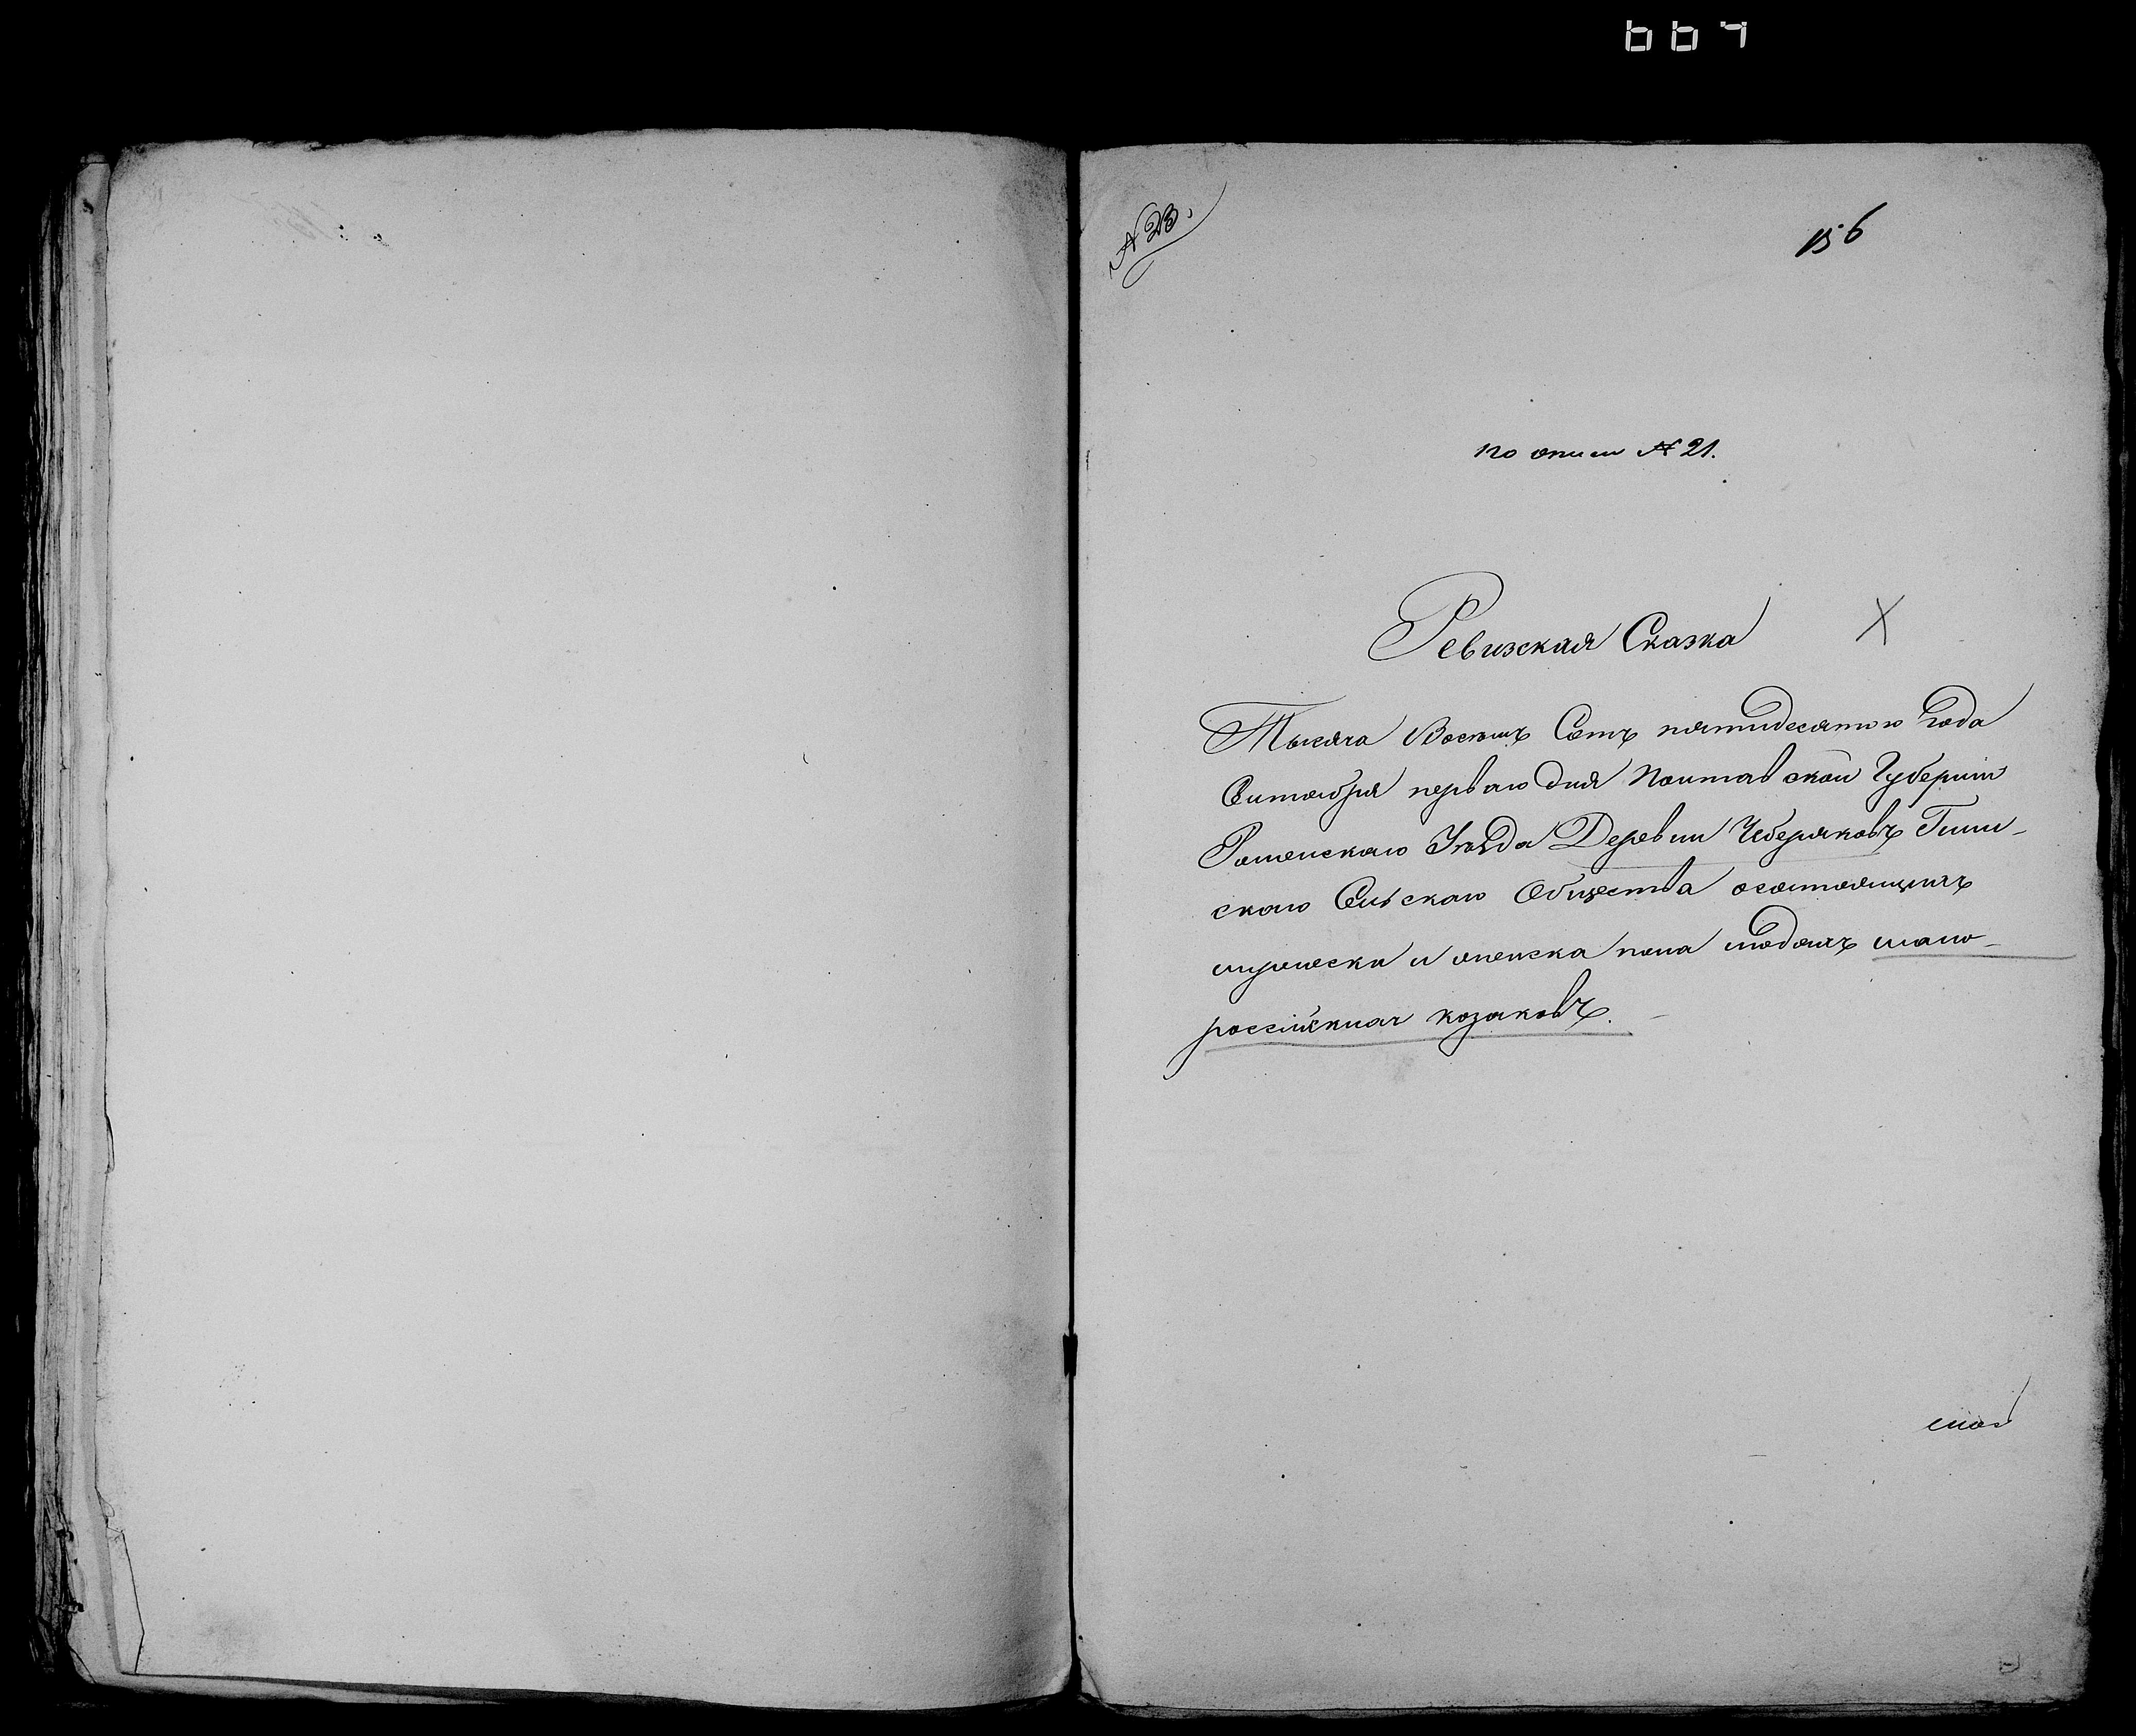 № 23.
156
по описи № 21.
Ревизская Сказка
Тысяча Восемь Сотъ пятидесятого Года
Сентября перваго дня Полтавской Губерніи
Роменскаго Уѣзда Деревни Чеберяковъ
скаго Сельскаго Общества о состоящихъ
мужеска и женска пола людяхъ мало-
россійскихъ козаковъ.